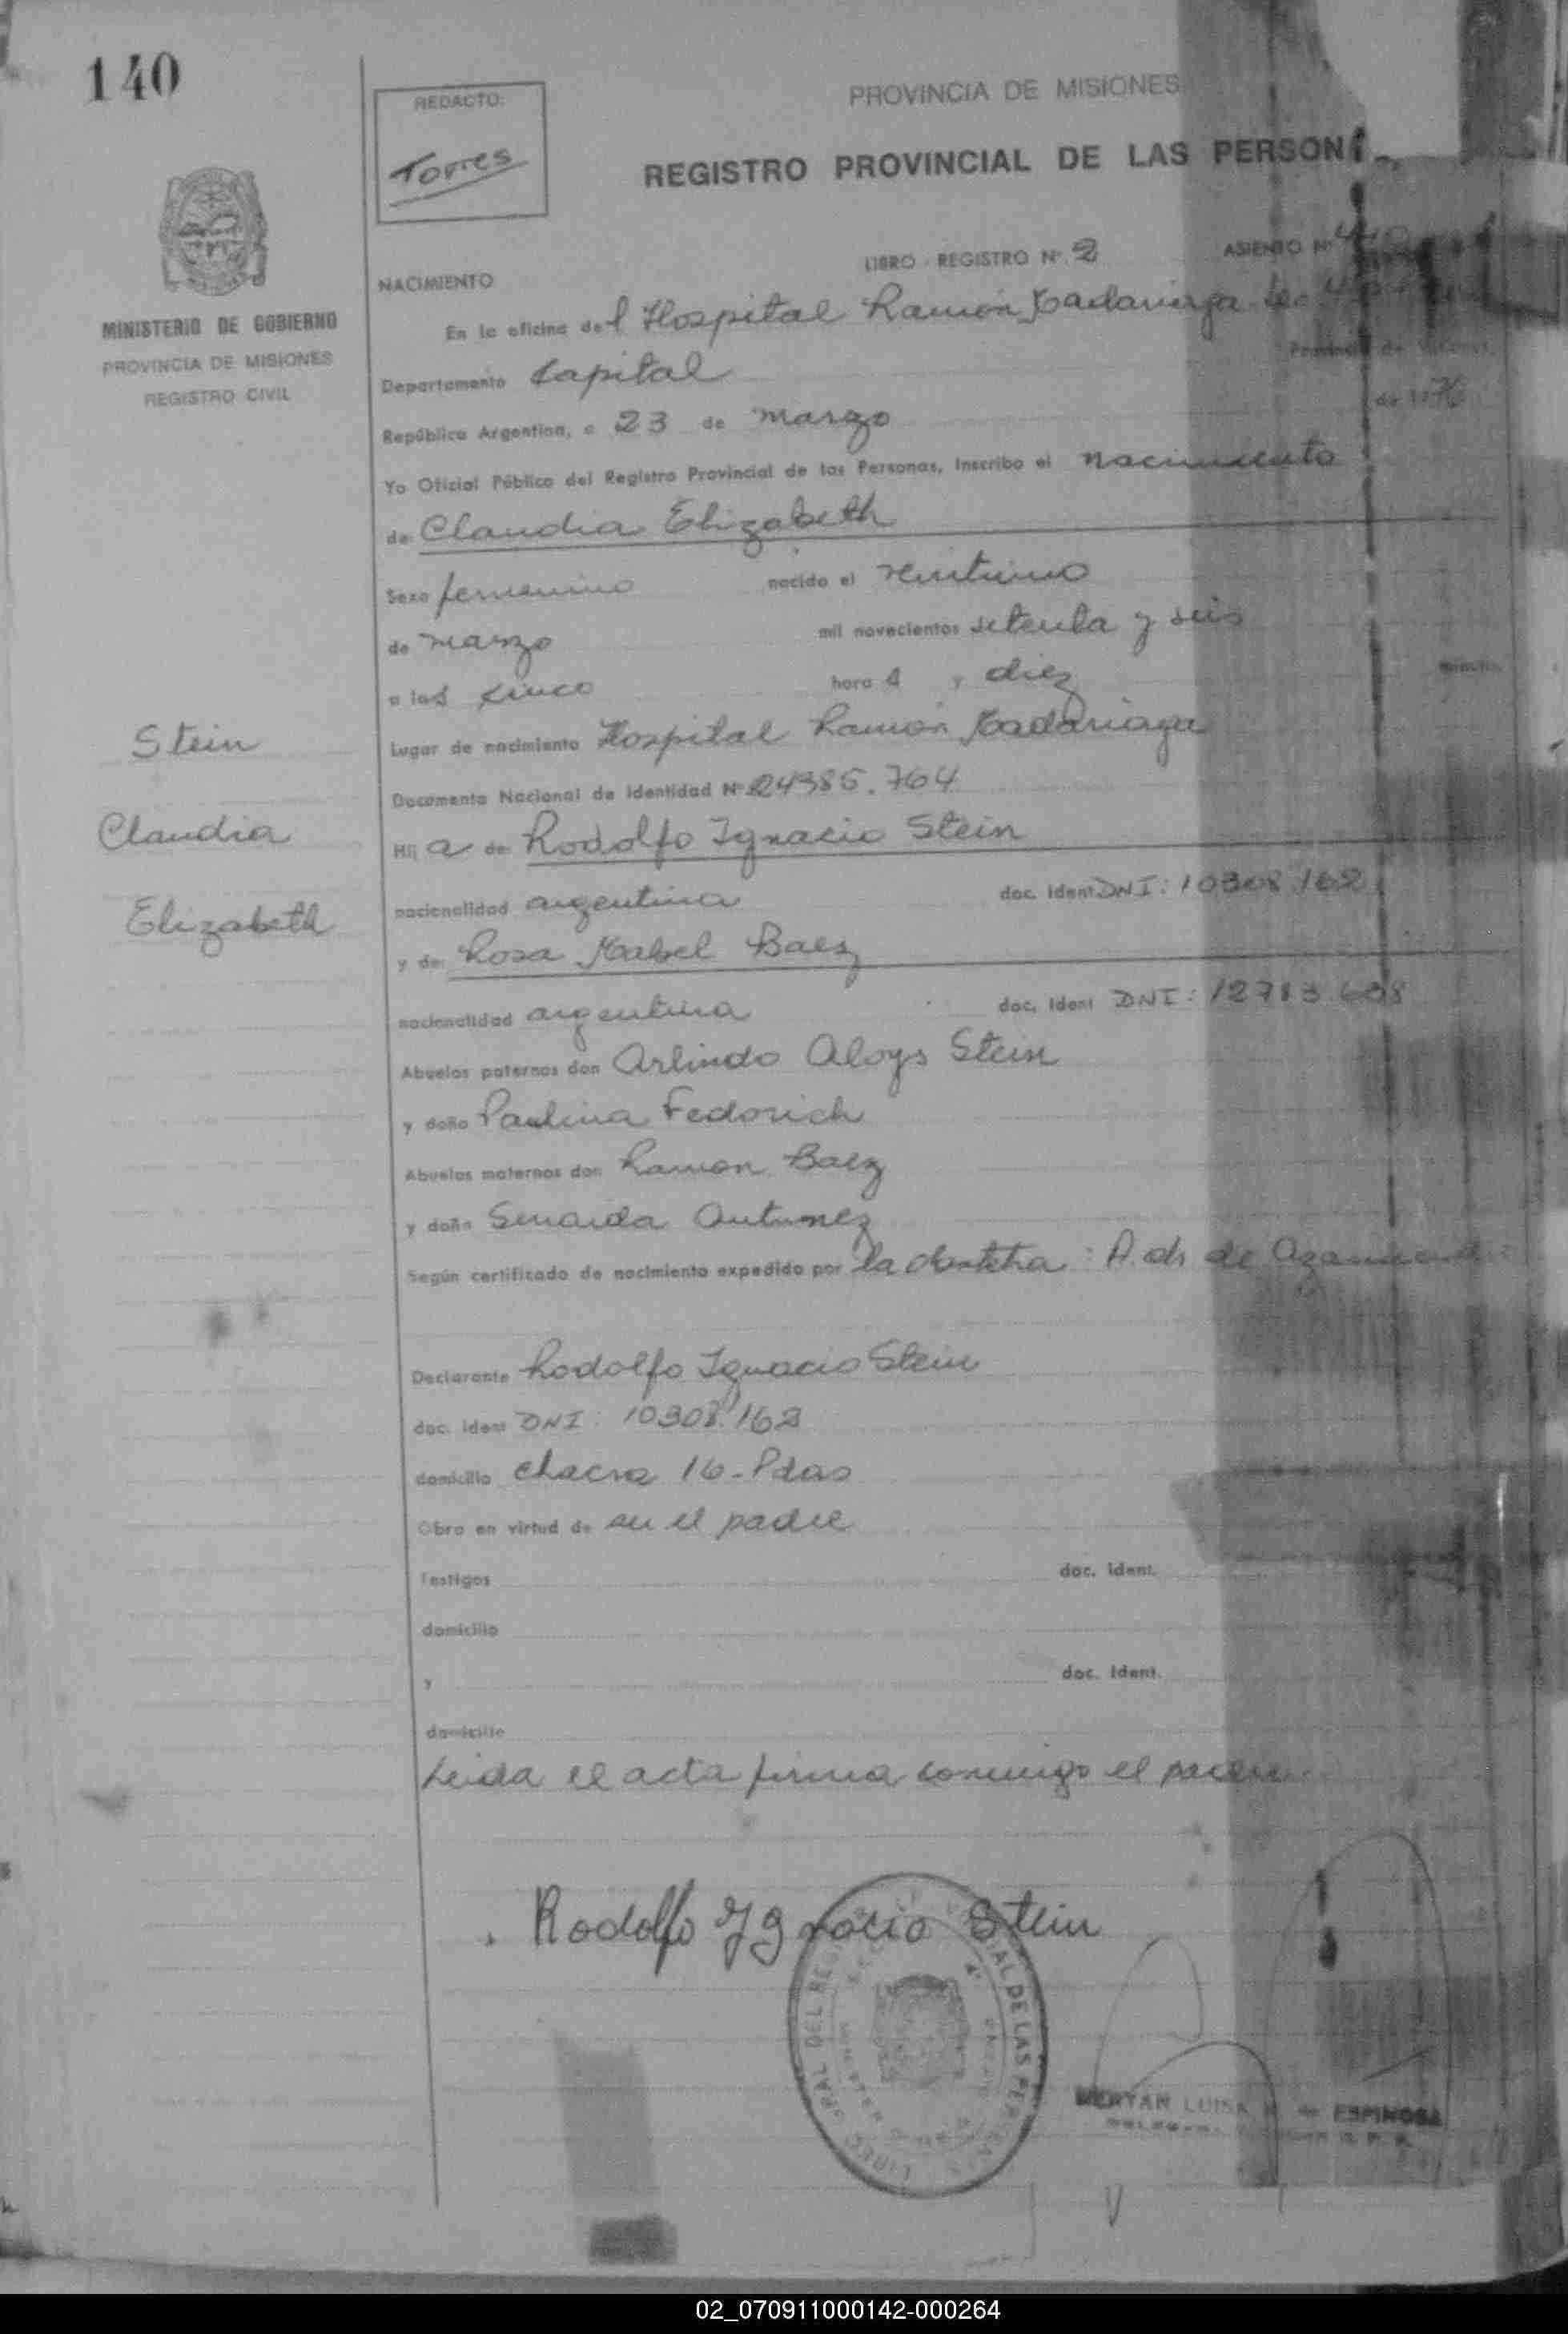 140
REDACTO:
Torres
PROVINCIA DE MISIONES
REGISTRO PROVINCIAL DE LAS PERSON
MINISTERIO DE GOBIERNO
PROVINCIA DE MISIONES
REGISTRO CIVIL
NACIMIENTO LIBRO - REGISTRO Nº 2 ASIENTO Nº
En la oficina del Hospital Ramón Madariaga
Departamento Capital Provincia de Misiones
República Argentina, a 23 de marzo de 1976
Yo Oficial Público del Registro Provincial de las Personas, Inscribo el nacimiento
de Claudia Elizabeth
Sexo femenino nacido el veintiuno
de marzo mil novecientos setenta y seis
a las cinco hora s y diez minutos
Lugar de nacimiento Hospital Ramón Madariaga
Documento Nacional de Identidad Nº 24385.764
Stein
Claudia
Elizabeth
Hij a de Rodolfo Ignacio Stein
nacionalidad argentina doc. Ident DNI: 10308.162
y de Rosa Mabel Baez
nacionalidad argentina doc. Ident DNI: 12713.608
Abuelos paternos don Arlindo Aloys Stein
y doña Paulina Fedorich
Abuelos maternos don Ramon Baez
y doña Senaida Antunez
Según certificado de nacimiento expedido por la obstetra: A. ch de
Declarante Rodolfo Ignacio Stein
doc. Ident DNI: 10308.162
domicilio chacra 16 - Pdas
Obra en virtud de ser el padre
Testigos doc. Ident.
domicilio
y doc. Ident.
domicilio
Leida el acta firma conmigo el
Rodolfo Ignacio Stein
LUISA de ESPINOSA
02_070911000142-000264